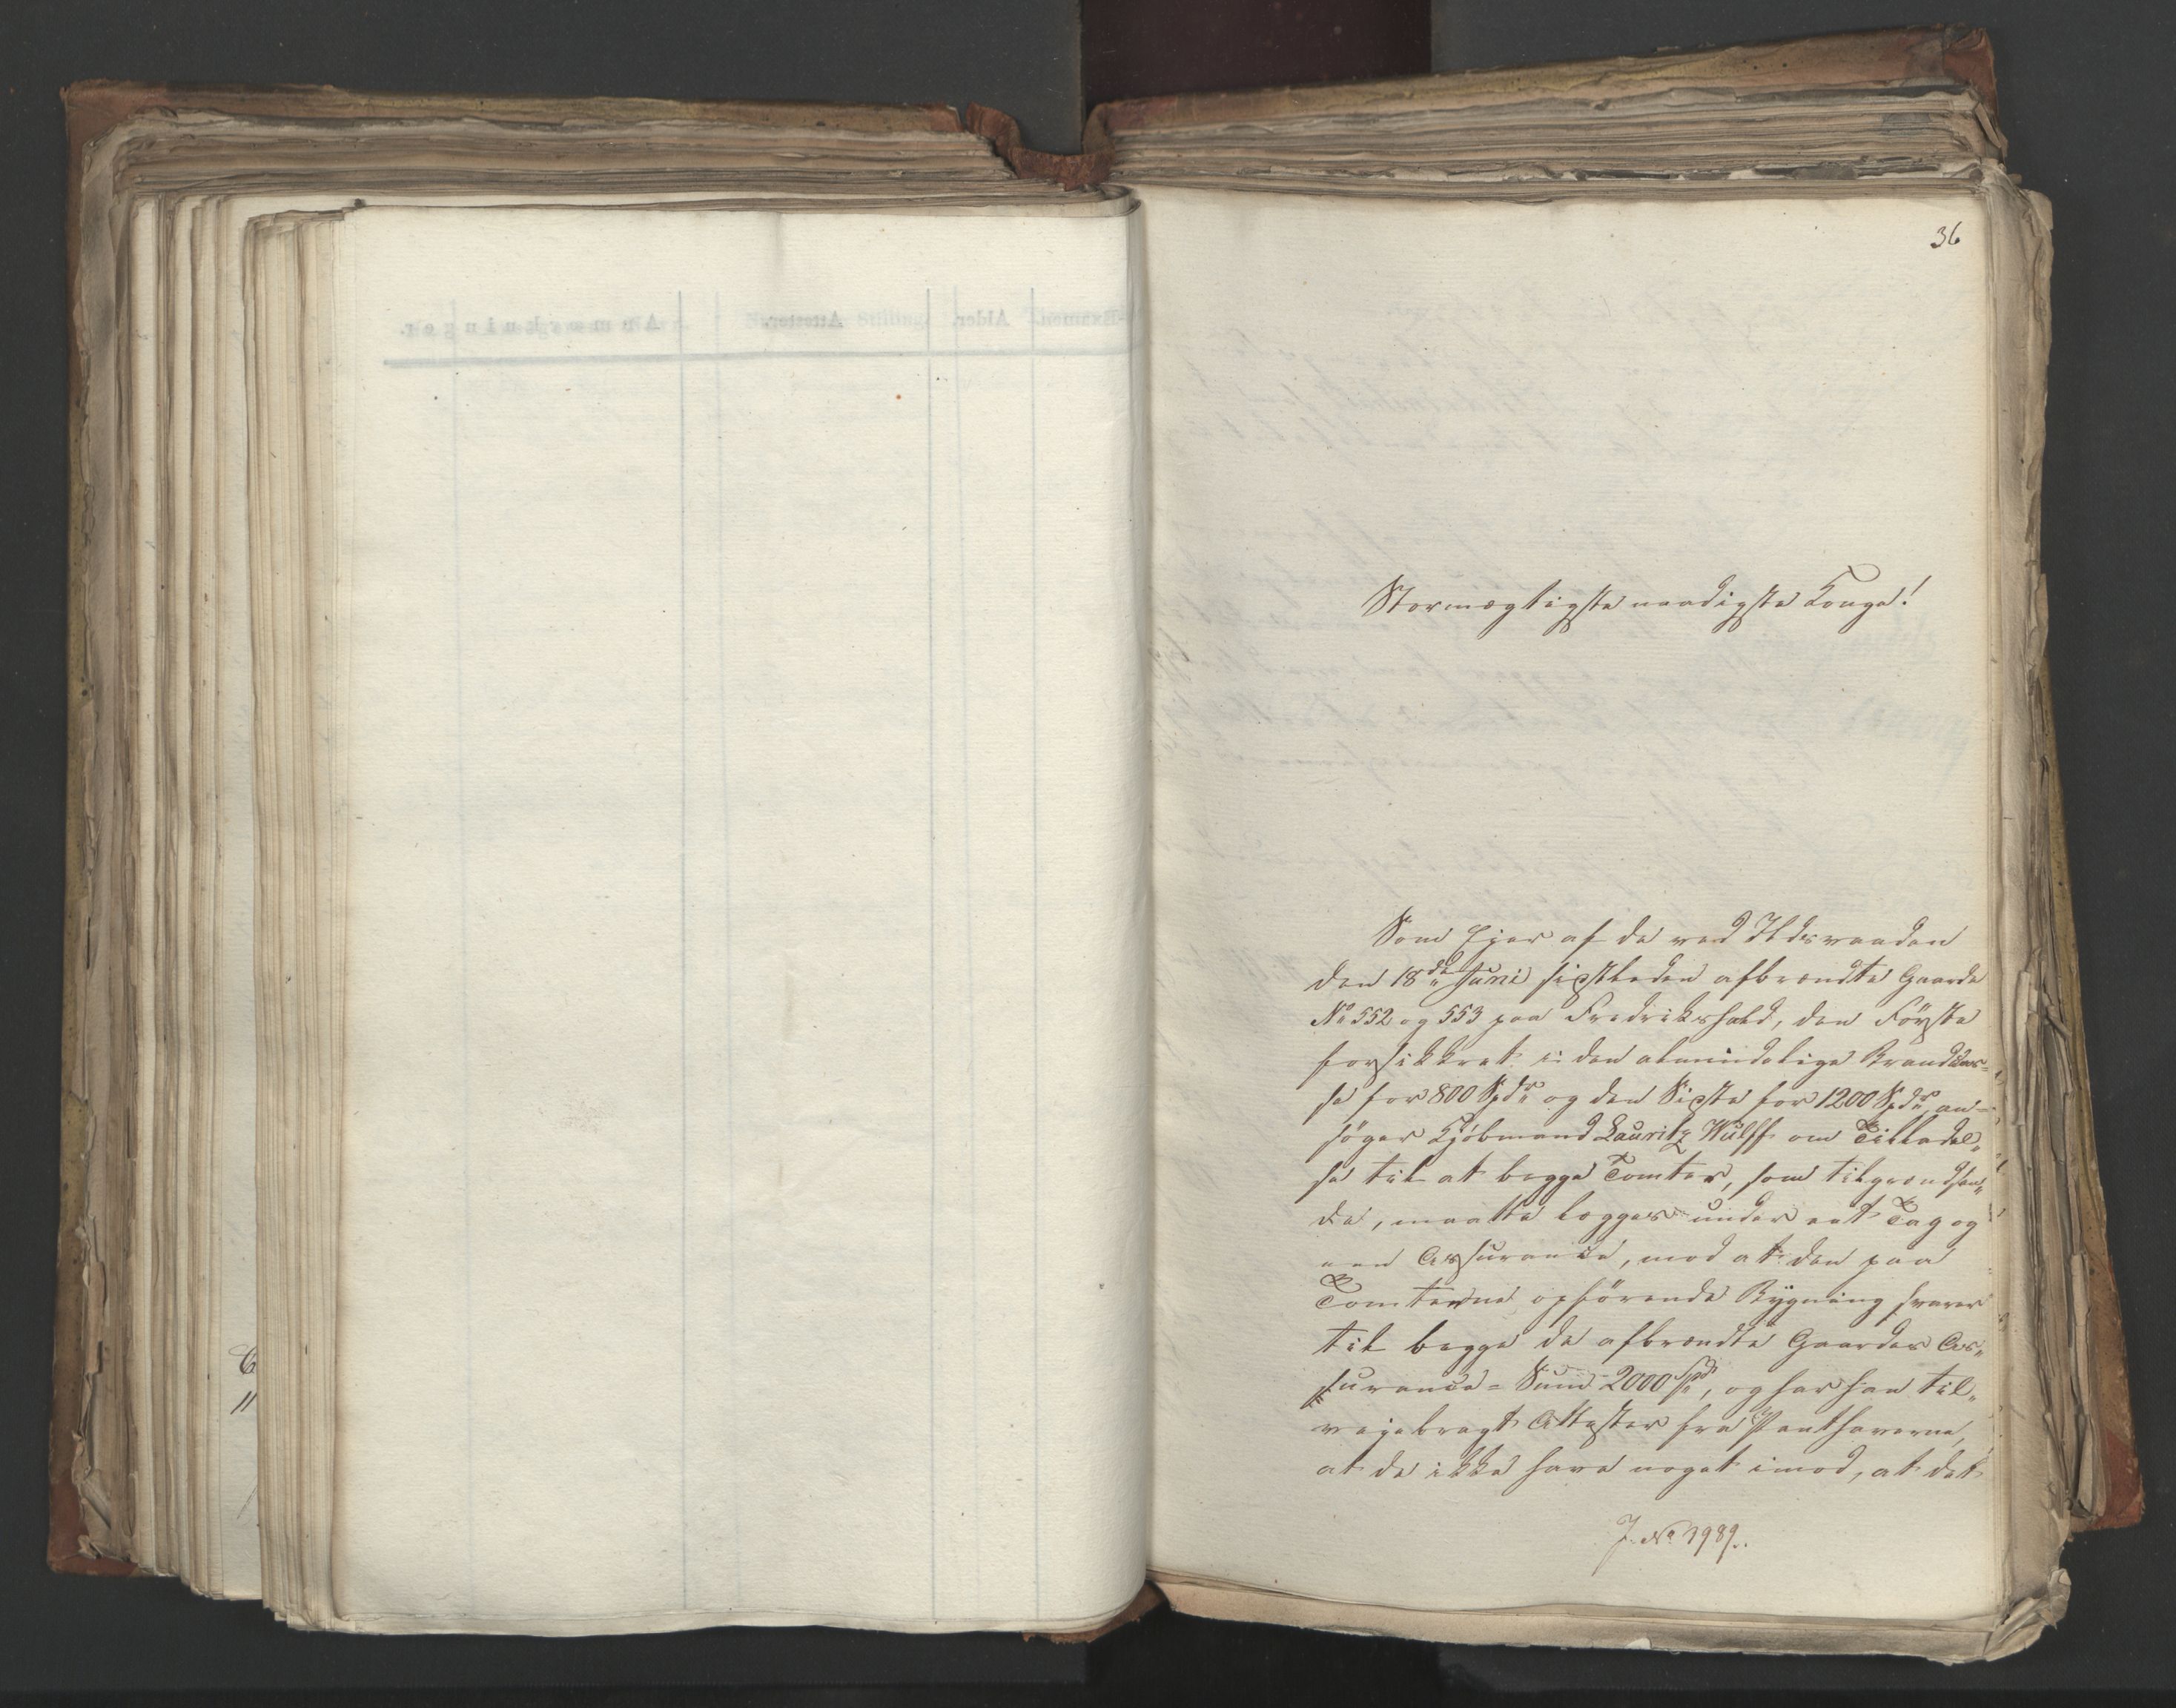 36
Stormægtigste naadigste Konge!
Som Ejer af de ved Ildsvaaden
den 18de Juni sidstleden afbrændte Gaarde
No 552 og 553 paa Fredrikshald, den Første
forsikkret i den almindelige Brandkas=
se for 800 Spdr og den Sidste for 1200 Spdr, an=
søger Kjøbmand Lauritz Wulff om Tilladel„
se til at begge Tomter, som tilgrændsen„
de, maatte lægges under eet Tag og
een Assurance, mod at den paa
Tomterne opførende Bygning svarer
til begge de afbrændte Gaardes As„
surance=Sum 2000 Spd, og har han til„
vejebragt Attester fra Panthaverne,
at de ikke have noget imod, at det
J. No 3989.